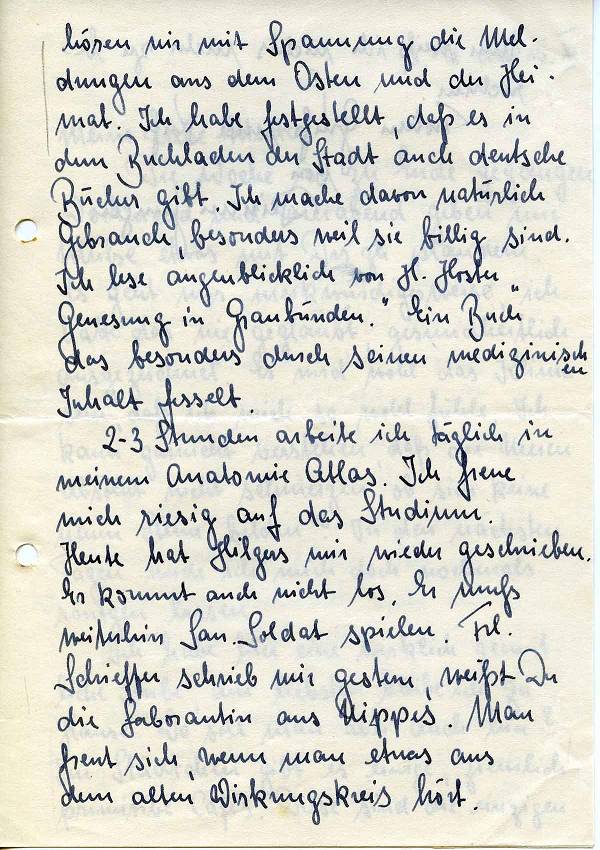 hören wir mit Spannung die Mel-
dungen aus dem Osten und der Hei-
mat. Ich habe festgestellt, daß es in
dem Buchladen der Stadt auch deutsche
Bücher gibt. Ich mache davon natürlich
Gebrauch, besonders weil sie billig sind.
Ich lese augenblicklich von H. Hoster „
Genesung in Graubünden." Ein Buch
das besonders durch seinen medizinischen
Inhalt fesselt.
2-3 Stunden arbeite ich täglich in
meinem Anatomie Atlas. Ich freue
mich riesig auf das Studium.
Heute hat Hilgers mir wieder geschrieben.
Er kommt auch nicht los. Er muß
weiterhin San. Soldat spielen. Frl.
Schieffer schrieb mir gestern, weißt Du
die Laborantin aus Nippes. Man
freut sich, wenn man etwas aus
dem alten Wirkungskreis hört.